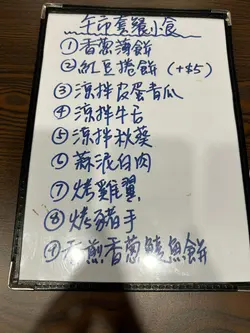 午市套餐小食
①香蔥薄餅
②紅豆捲餅(+$5)
③涼拌皮蛋青瓜
④涼拌牛舌
⑤涼拌秋葵
⑥蒜泥白肉
⑦烤雞翼
⑧烤豬手
⑨香煎香蔥鯪魚餅